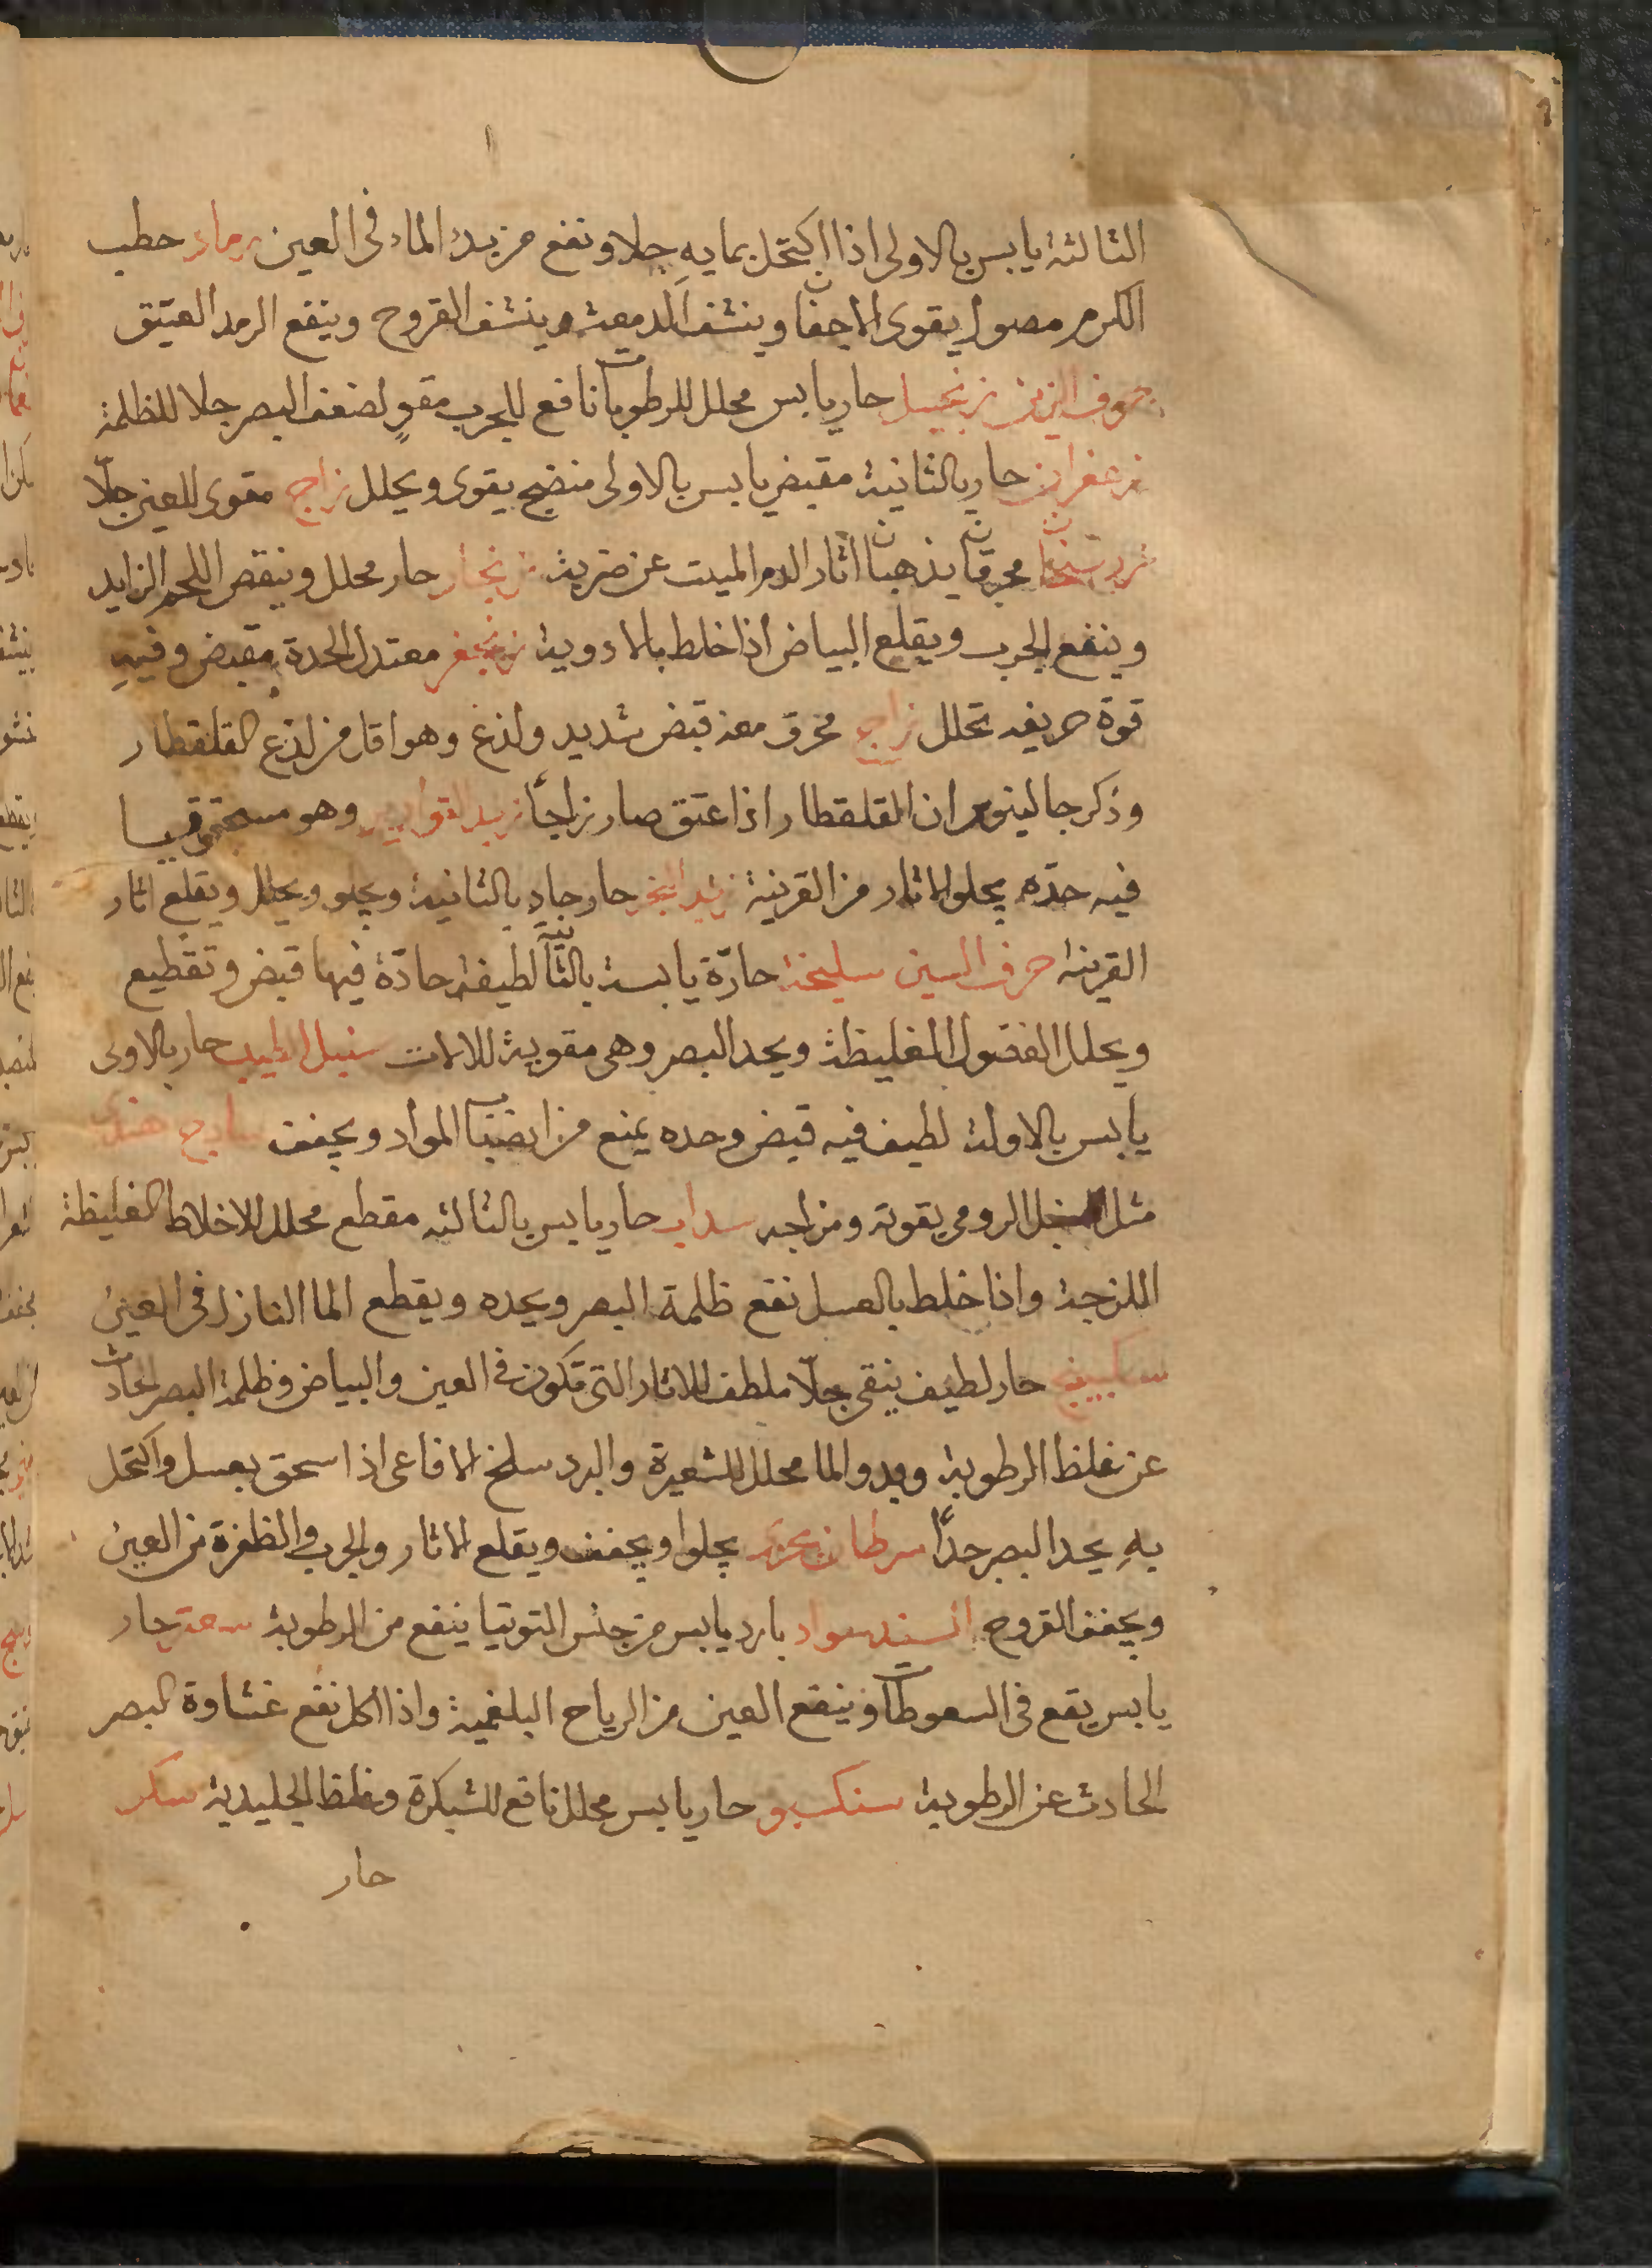 الثالثة يابس بالاولى اذا اكتحل بمايه جلا ونفع من بدء الماء فى العين رماد حطب
الكرم مصول يقوى الاجفان وينشف الدمعة وينشف القروح وينفع الرمد العتيق
حروف الزين زنجبيل حار يابس محلل للرطوبات نافع للجرب مقوٍ لضعف البصر جلا للظلمة
زعفران حار بالثانية مقبض يابس بالاولى منضج يقوى ويحلل زاج مقوى للعين جلّا
محرقان يذهبان اثار الدم الميت عن ضربة زنجار حار محلل وينقص اللحم الزايد
وينفع الجرب ويقلع البياض اذا خلط بالادوية زنجفر معتدل الحدة مقبض وفيهِ
قوة حريفه تحلل زاج محرق معه قبض شديد ولذع وهو اقل من لذع القلقطار
وذكر جالينوس ان القلقطار اذا عتق صار زاجاً زبد القوارير وهو مسحقونيا
فيه حدّه يجلو الاثار من القرنية زبد البحر حار حاد بالثانية ويجلو ويحلل ويقلع اثار
القرنية حرف السين سليخة حارّة يابسة بالثانية لطيفة حادّة فيها قبض وتقطيع
ويحلل الفضول الغليظة ويحد البصر وهى مقوية للالات سنبل الطيب حار بالاولى
يابس بالاولة لطيف فيه قبض وحده يمنع من انصباب المواد ويجفف سادج هندى
مثل الرومى بقوته ومزاجه سداب حار يابس بالثالثه مقطع محلل للاخلاط الغليظة
اللزجة واذا خلط بالعسل نفع ظلمة البصر ويحده ويقطع الما النازل فى العين
سكبينج حار لطيف ينقى جلّا ملطف للاثار التى تكون فى العين والبياض وظلمة البصر الحادث
عن غلظ الرطوبة وبدو الما محلل للشعيرة والبرد سلخ الافاعى اذا سحق بعسل واكتحل
بهِ يحد البصر جدًّا سرطان بحرى يجلوا ويجفف ويقلع الاثار والجرب والظفرة من العين
ويجفف القروح السندسواد بارد يابس من جنس التوتيا ينفع من الرطوبة سعد حار
يابس يقع فى السعوطات وينفع العين من الرياح البلغمية واذا اكل نفع غشاوة البصر
الحادث عن الرطوبة سنكسبو حار يابس محلل نافع للشبكرة وغلظ الجليدية سكر
حار